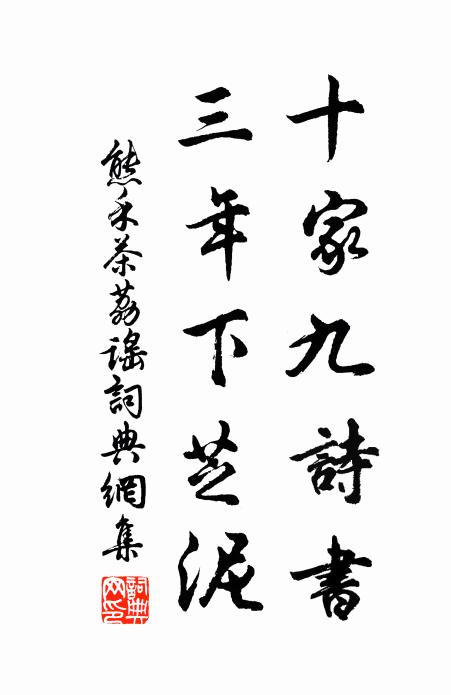 十家九詩書
三年下芝泥
熊禾茶荔謠詞典網集
詞典網印